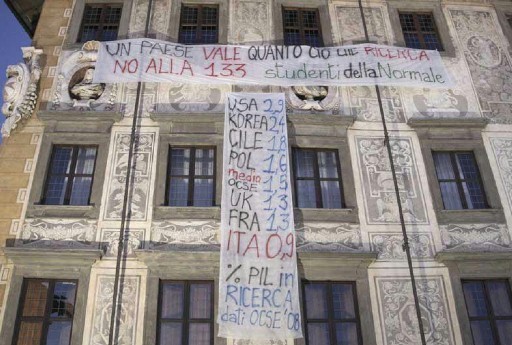 UN PAESE VALE QUANTO CIÒ CHE RICERCA
NO ALLA 133 studenti della Normale
USA 2,9
KOREA 2,4
CILE 1,8
POL 1,6
media OCSE 1,5
UK 1,3
FRA 1,3
ITA 0,9
% PIL in
RICERCA
dati OCSE '08